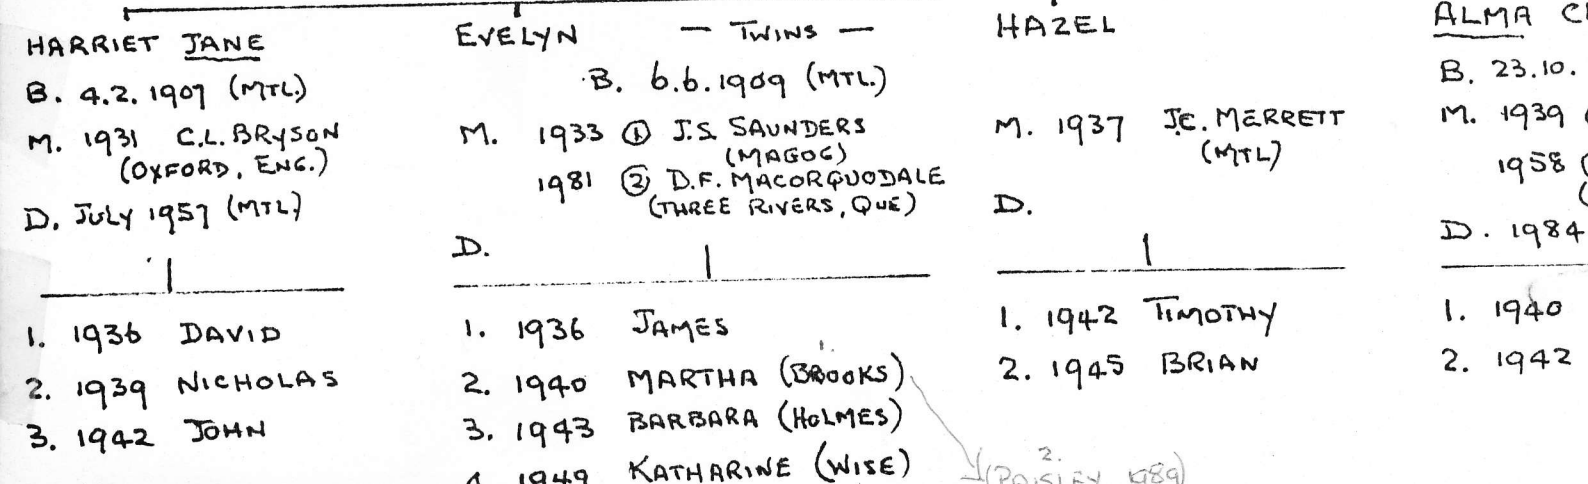 HARRIET JANE
B. 4.2.1907 (MTL)
M. 1931 C.L. BRYSON
(OXFORD, ENG.)
D. JULY 1957 (MTL)
1. 1936 DAVID
2. 1939 NICHOLAS
3. 1942 JOHN
EVELYN — TWINS — HAZEL
B. 6.6.1909 (MTL.)
M. 1933 ① J.S. SAUNDERS
(MAGOG)
1981 ② D.F. MACORQUODALE
(THREE RIVERS, QUE)
D.
1. 1936 JAMES
2. 1940 MARTHA (BROOKS)
3. 1943 BARBARA (HOLMES)
4. 1949 KATHARINE (WISE)
2.
1989)
M. 1937 J.C. MERRETT
(MTL)
D.
1. 1942 TIMOTHY
2. 1945 BRIAN
ALMA
B. 23.10.
M. 1939
1958
D. 1984
1. 1940
2. 1942